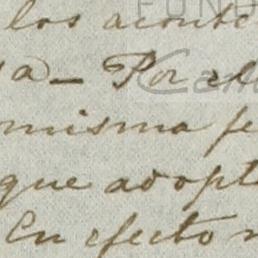 los acont
a — Por el
misma fe
que adopt
En efecto